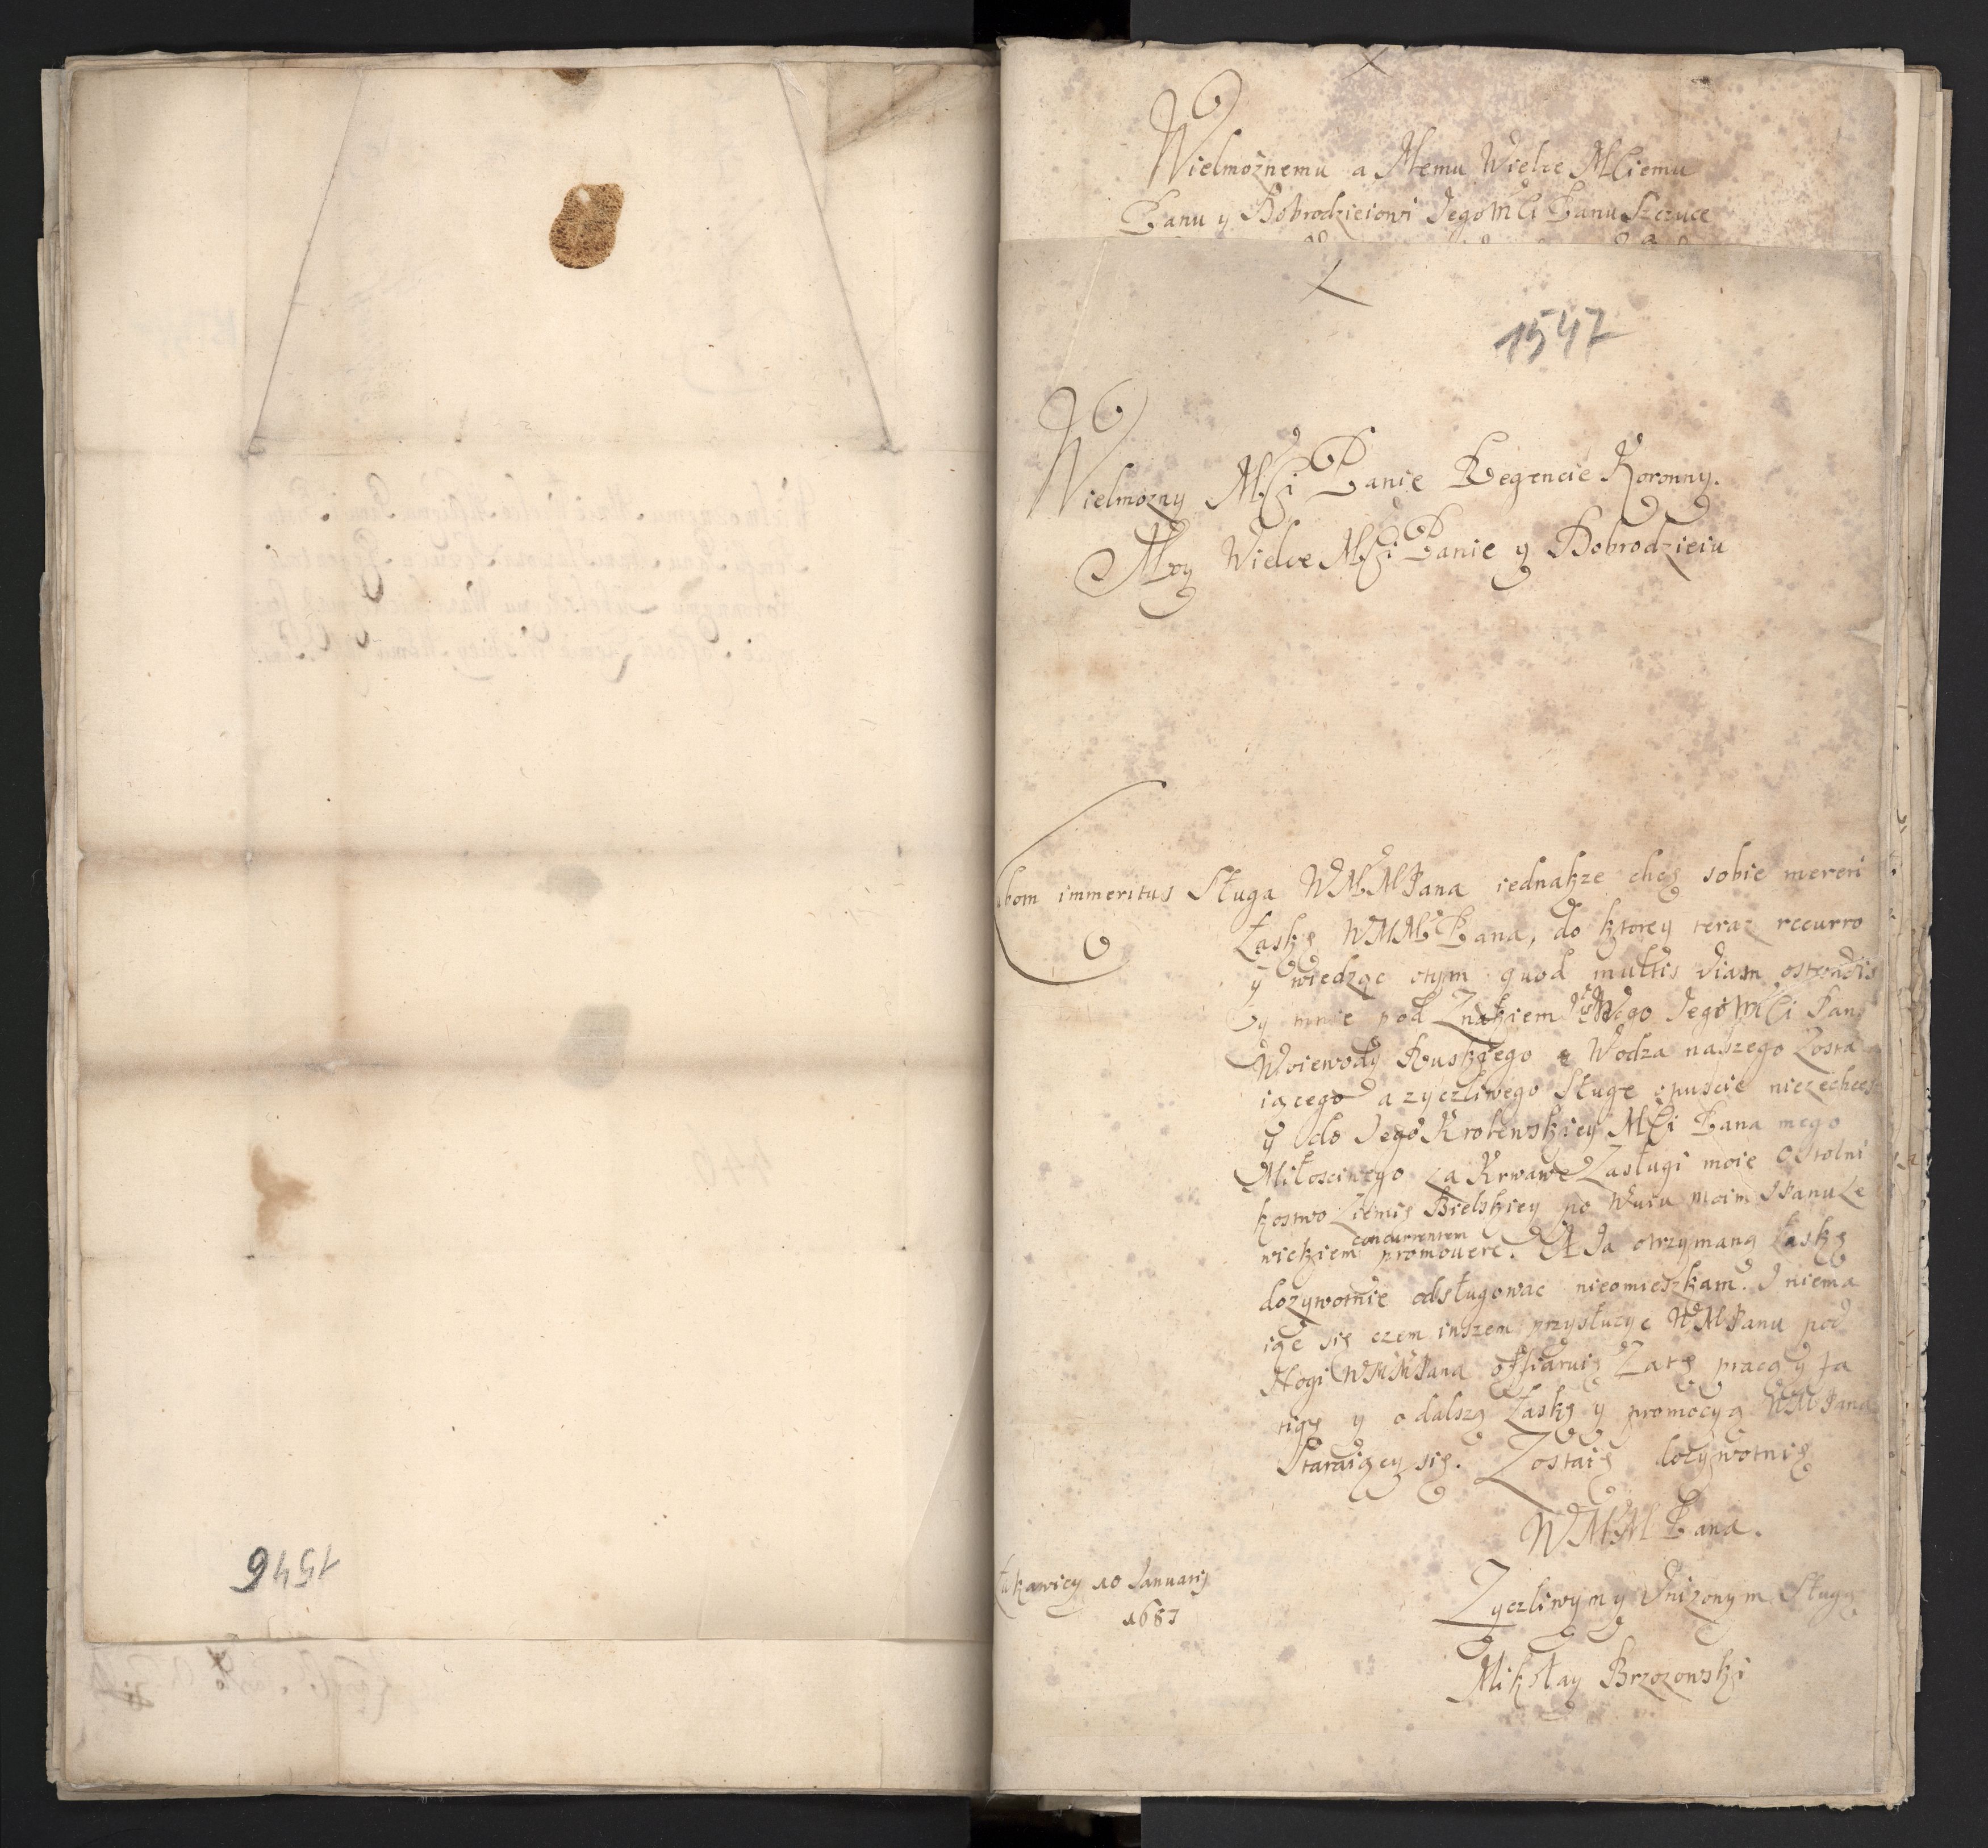 1546
Wielmożnemu a Memu Wielce MCiemu
Panu y Dobrodzieiowi Jego MCi Panu Szczuce
1547
Wielmozny MCi Panie Regencie Koronny.
Moy Wielce MCi Panie y Dobrodzieiu
immeritus Sługa WMMPana iednakze chcę sobie mereri
Łaskę WMMPana, do ktorey teraz recurro
y wiedząc otym quod multis viam ostendis
y mnie pod Znakiem Jego MCi Pana
Woiewody Ruskiego a Wodza naszego Zosta
iącego a zyczliwego Sługę opuscic niezechcesz
y do Jego Krolewskiey MCi Pana mego
Miłosciwego za Krwawe Zasługi moie o Stolni
kostwo Ziemię Bielskiey po Wuiu moim Panu Ze
wickiem concurrentem promovere. A Ja otrzymaną Łaskę
dozywotnie odsługowac nieomieszkam. I niema
iąc się czem inszem przysłuzyc WMPanu pod
Nogi WMMPana offiaruię Zatę pracą y fa
tigę y o dalszą Łaskę y promocyą WMPana
Staraiący się. Zostaię dozywotnię
WMM Pana.
Zyczliwym y Unizonym Sługą
10 Januarij
1687
Mikołay Brzozowski